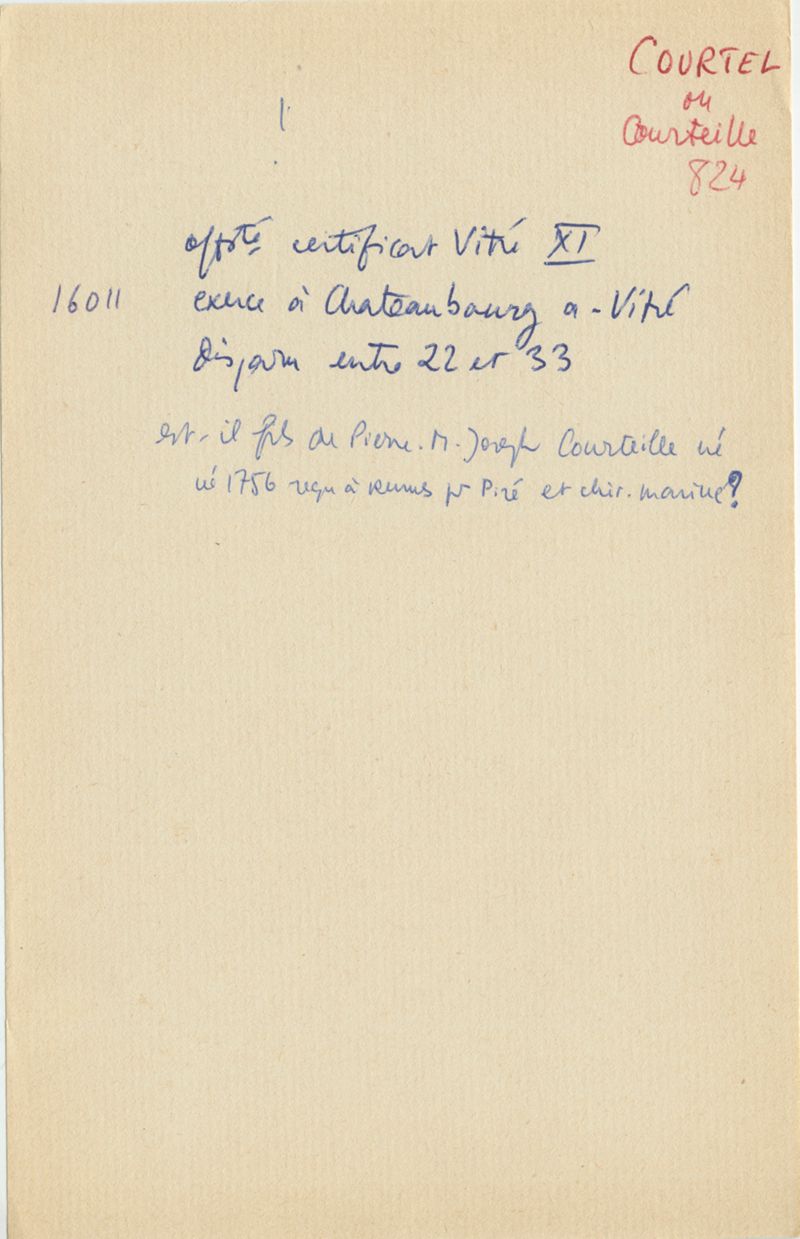 COURTEL
ou
Courteille
824
certificat Vitré XI
16011 exerce à Chateaubourg a - Vitré
disparu entre 22 et 33
est-il fils de Pierre. M. Joseph Courteille né
né 1756 reçu à Rennes pr Piré et chir. marine?